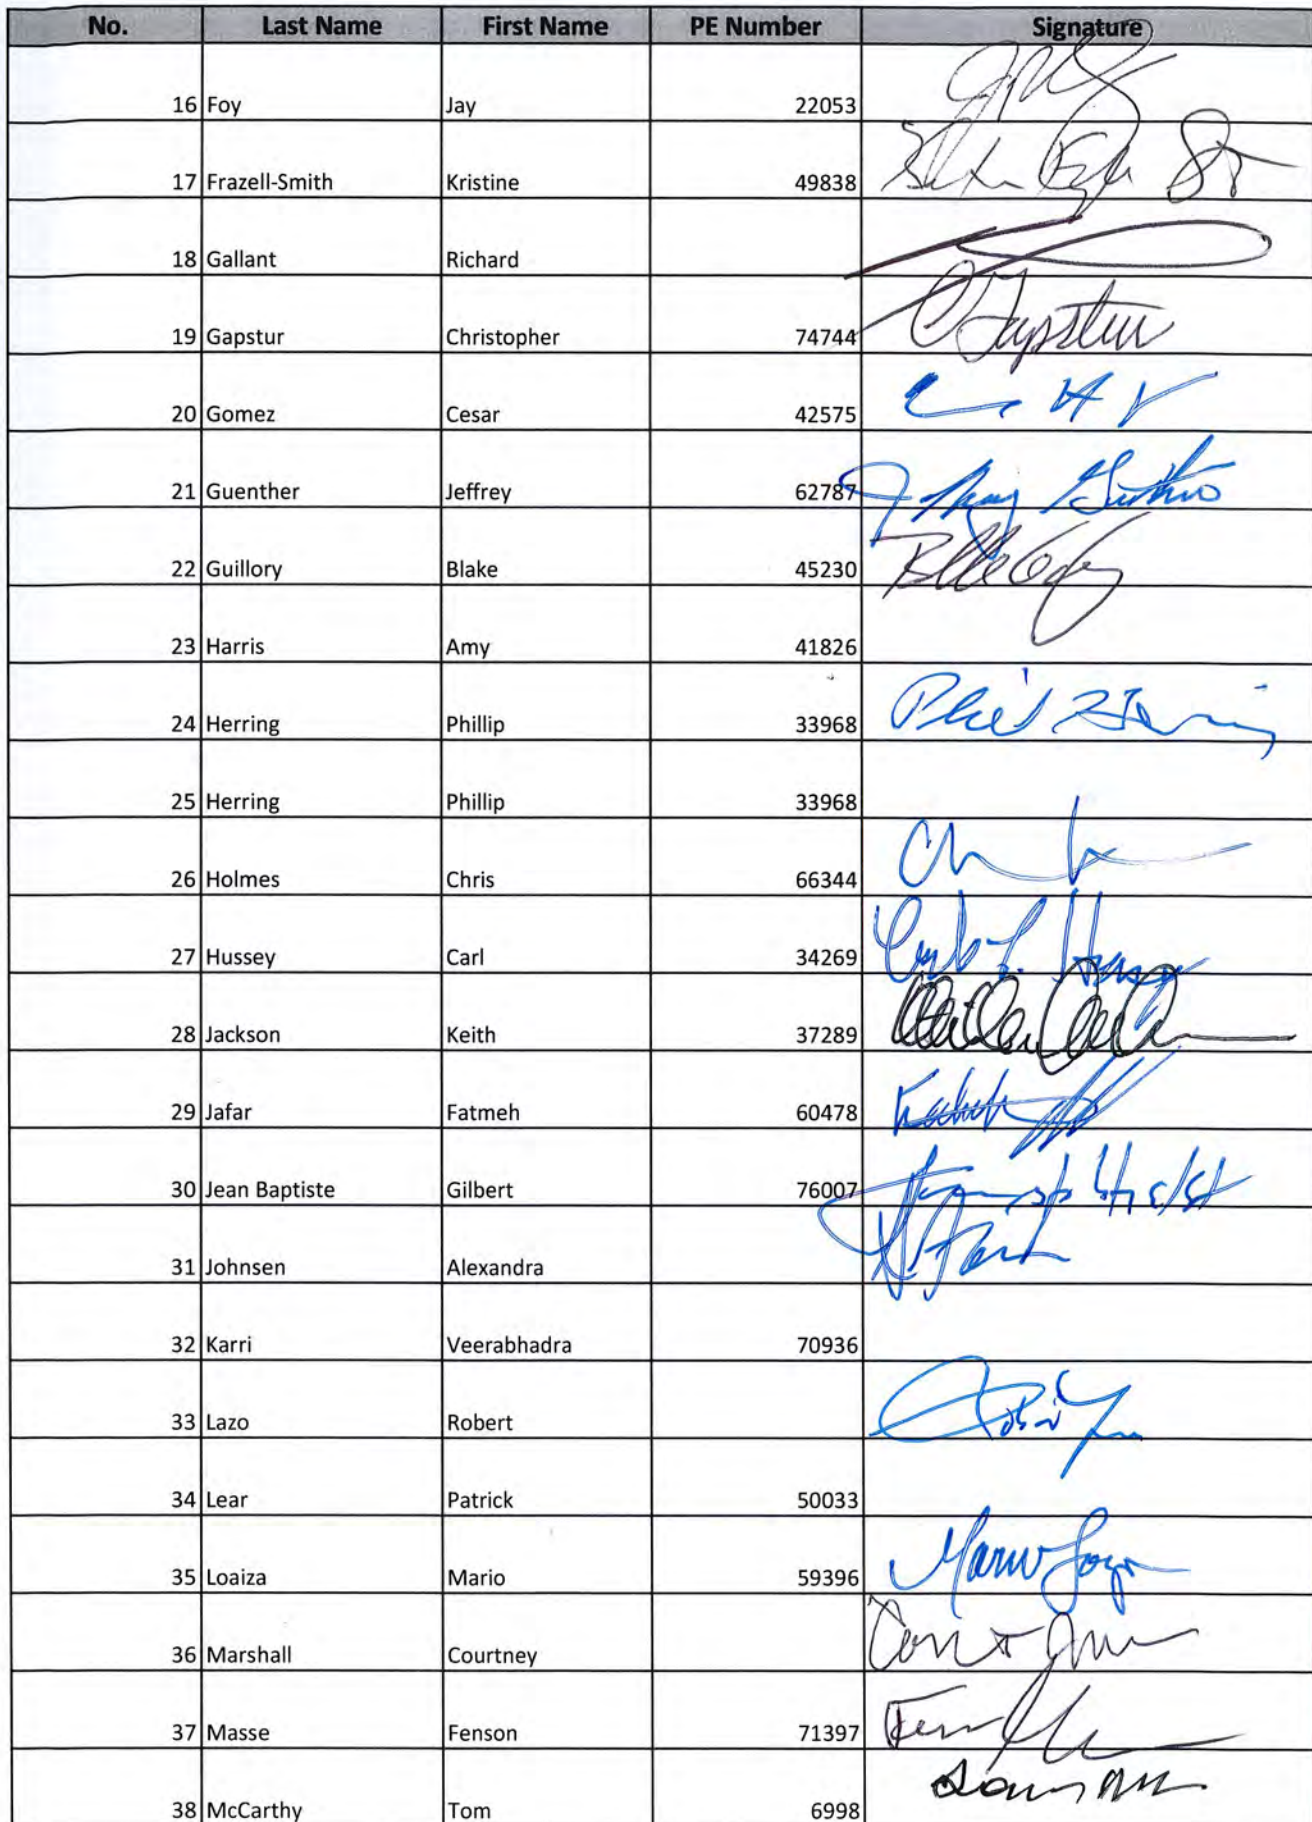 No. Last Name First Name PE Number Signature
16 Foy Jay 22053
17 Frazell-Smith Kristine 49838
18 Gallant Richard
19 Gapstur Christopher 74744 C Gapstur
20 Gomez Cesar 42575
21 Guenther Jeffrey 62787
22 Guillory Blake 45230
23 Harris Amy 41826
24 Herring Phillip 33968 Phil Herring
25 Herring Phillip 33968
26 Holmes Chris 66344
27 Hussey Carl 34269
28 Jackson Keith 37289
29 Jafar Fatmeh 60478
30 Jean Baptiste Gilbert 76007
31 Johnsen Alexandra
32 Karri Veerabhadra 70936
33 Lazo Robert
34 Lear Patrick 50033
35 Loaiza Mario 59396 Mario
36 Marshall Courtney
37 Masse Fenson 71397
38 McCarthy Tom 6998